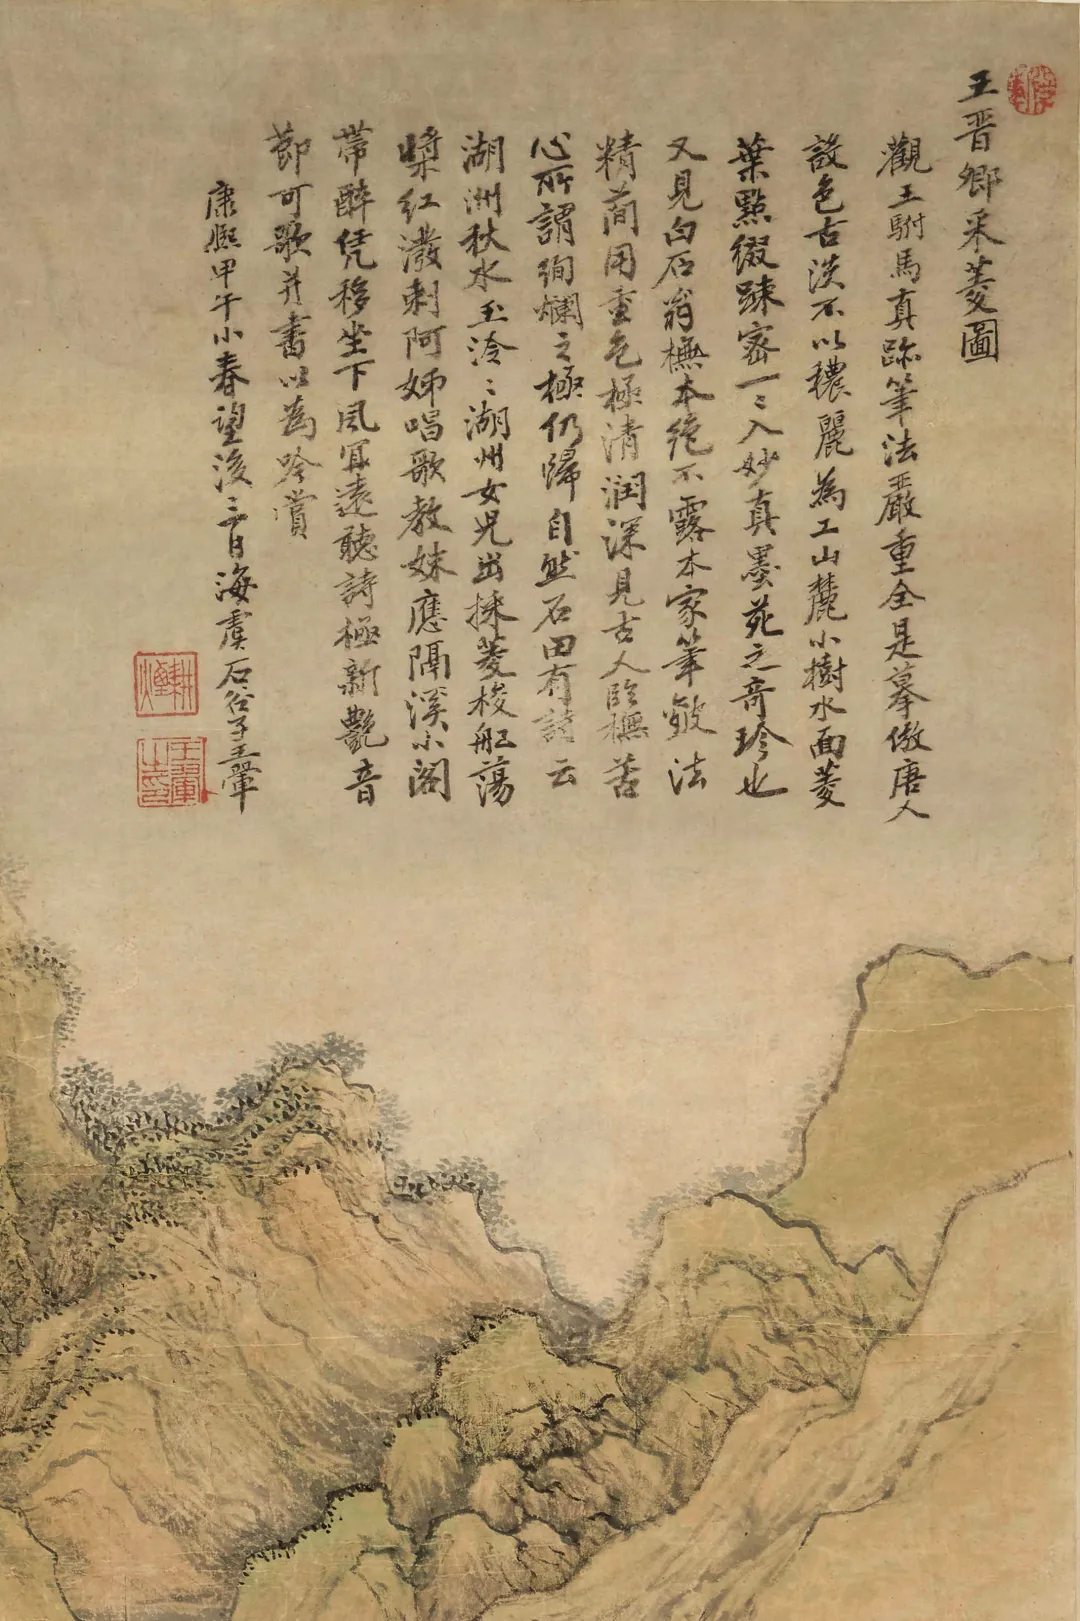 王晉卿采菱圖
觀王駙馬真跡筆法嚴重全是摹倣唐人
設色古淡不以穠麗為工山麓小樹水面菱
葉點綴踈密一〻入妙真墨苑之奇珍也
又見白石翁橅本絶不露本家筆皴法
精蕳用重色極清潤深見古人臨橅苦
心所謂絢爛之極仍歸自然石田有詩云
湖洲秋水玉泠〻湖州女兒出採菱梭船蕩
槳紅潑剌阿姊唱歌教妹應隔溪小閣
帶醉凭移坐下風宜遠聽詩極新艷音
節可歌并書以為吟賞
康熙甲午小春望後二日海虞石谷子王翬
耕煙
王翬之印